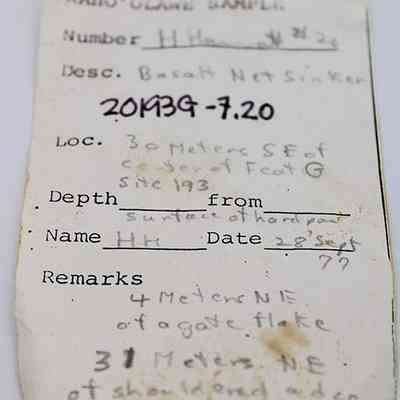 SAMPLE
Number HH
Desc. Basalt Net Sinker
20193G-7.20
Loc. 30 Meters SE of
center of Feat G
Site 193
Depth from
surface of hard pan
Name HH Date 28 Sept
77
Remarks
4 Meters NE
of agate flake
31 Meters NE
of shouldered